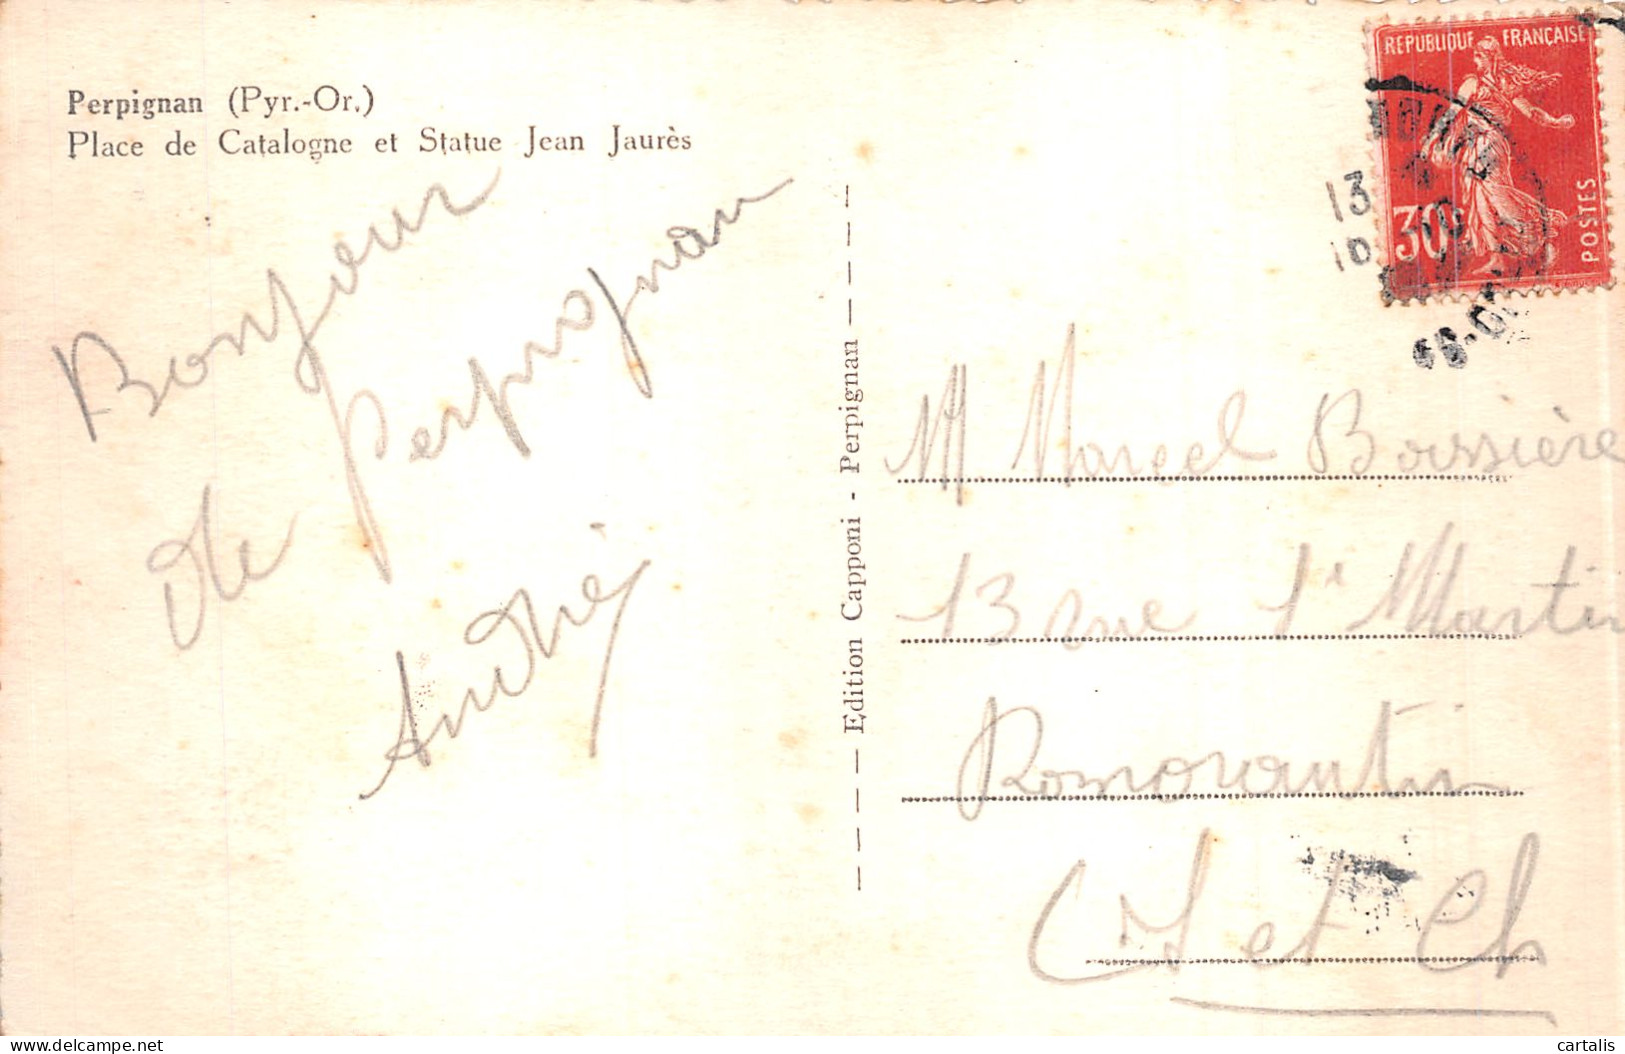 Perpignan (Pyr.-Or.)
Place de Catalogne et Statue Jean Jaurès
Bonjour
de Perpignan
André
Edition Capponi - Perpignan
REPUBLIQUE FRANÇAISE
30c
POSTES
13
10
M Marcel Boissière
13 rue St Martin
Romorantin
L et Ch
cartalis delcampe.net